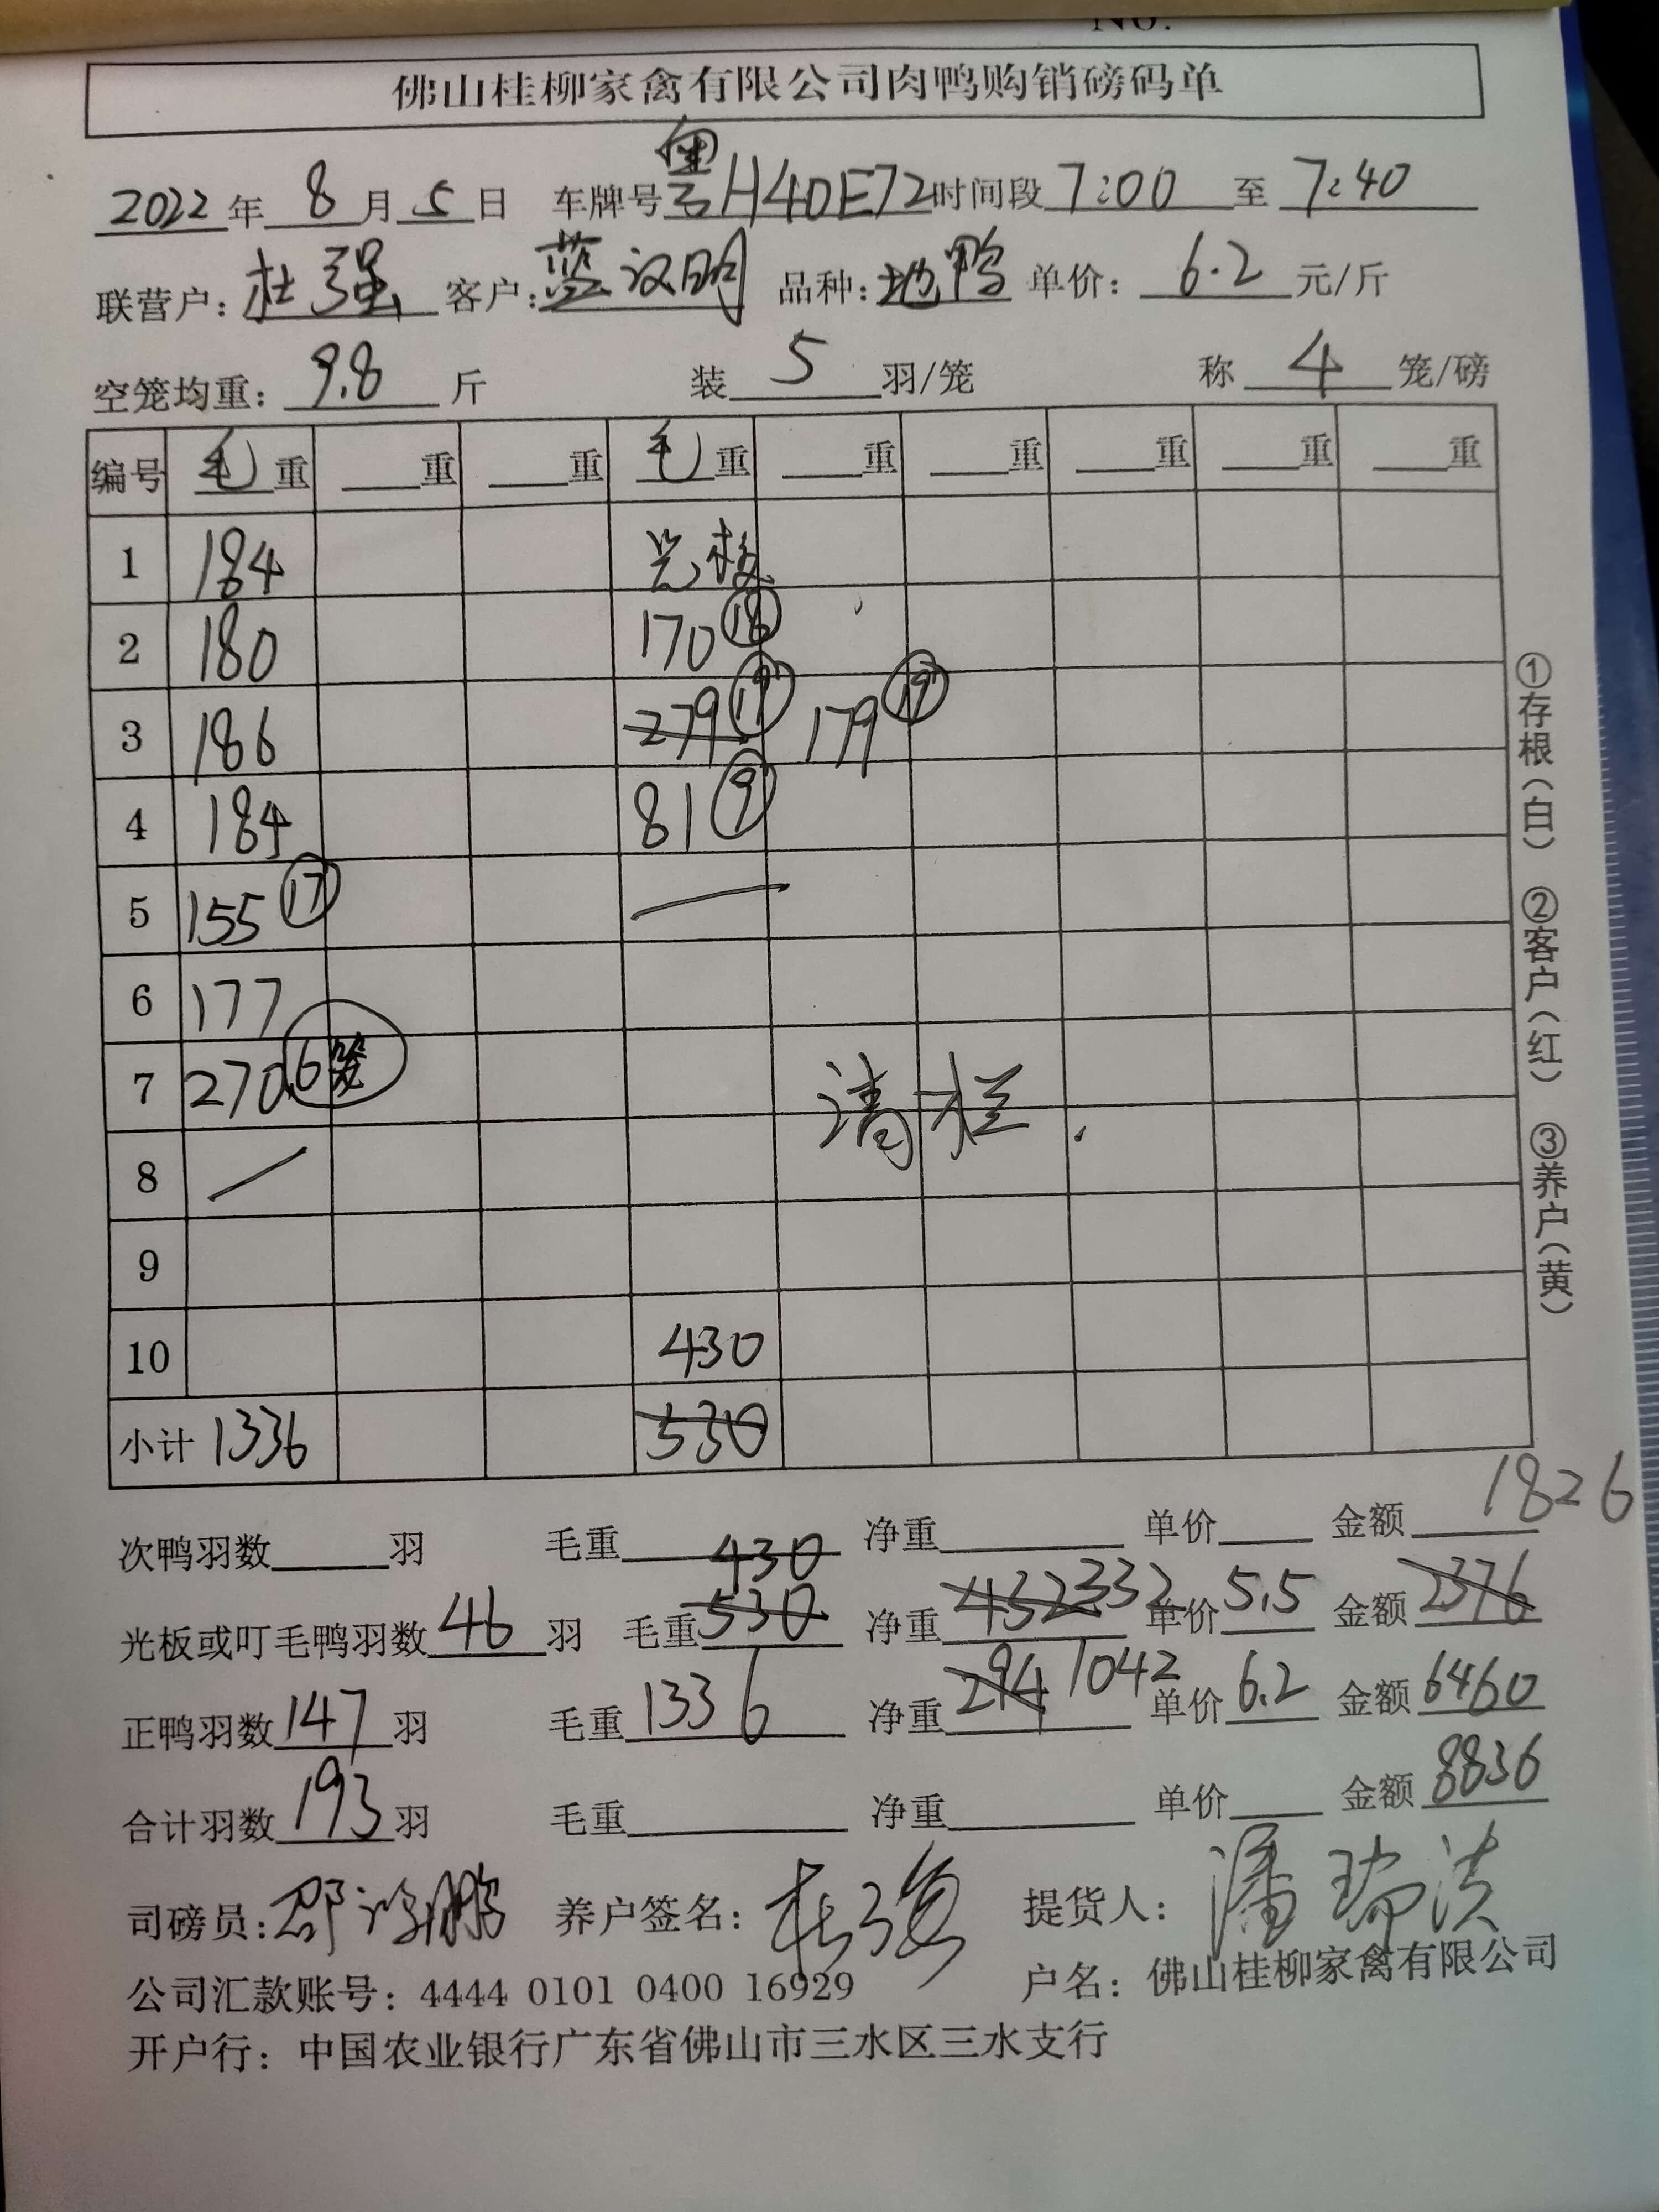 No.
佛山桂柳家禽有限公司肉鸭购销磅码单
2022年 8月 5日 车牌号 粤H40E72 时间段 7:00 至 7:40
联营户: 杜强 客户: 蓝汉明 品种: 地鸭 单价: 6.2 元/斤
空笼均重: 9.8 斤 装 5 羽/笼 称 4 笼/磅
编号 毛重 重 重 毛重 重 重 重 重 重
1 184 光板
2 180 170 ⑱
3 186 279 ⑲ 179 ⑲
4 184 81 ⑨
5 155 ⑰ —
6 177
7 270 6笼 清栏.
8 /
9
10 430
小计 1336 530
1826
次鸭羽数 羽 毛重 净重 单价 金额
430
光板或叮毛鸭羽数 46 羽 毛重 530 净重 432 332 单价 5.5 金额 2376
正鸭羽数 147 羽 毛重 1336 净重 294 1042 单价 6.2 金额 6460
合计羽数 193 羽 毛重 净重 单价 金额 8836
司磅员: 养户签名: 杜强 提货人: 潘瑞洪
公司汇款账号: 4444 0101 0400 16929 户名: 佛山桂柳家禽有限公司
开户行: 中国农业银行广东省佛山市三水区三水支行
①存根(白) ②客户(红) ③养户(黄)